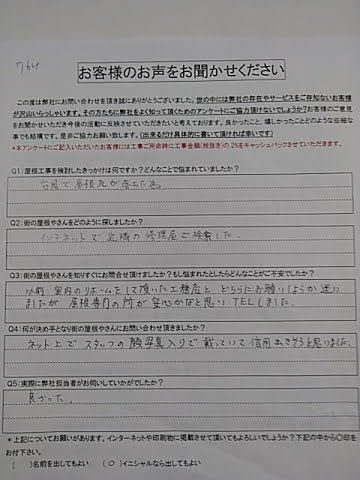 764
お客様のお声をお聞かせください
この度は弊社にお問い合わせを頂き誠にありがとうございました。世の中には弊社の存在やサービスをご存知ないお客様
が沢山いらっしゃいます。その方たちに弊社をよく知って頂くためのアンケートにご協力頂けないでしょうか?お客様のご意見
をお聞かせいただき今後の活動に反映させていただきたいと考えております。良かったこと、嬉しかったことどのような些細な
事でも結構です。是非ご協力お願い致します。(出来るだけ具体的に書いて頂ければ幸いです)
*本アンケートにご記入いただいたお客様には工事ご用命時に工事金額(税抜き)の2%をキャッシュバックさせていただきます。
Q1:屋根工事を検討したきっかけは何ですか?どんなことで悩まれていましたか?
台風で屋根瓦が落ちた為。
Q2:街の屋根やさんをどのように探しましたか?
インターネットで近隣の修理屋で検索した。
Q3:街の屋根やさんを知りすぐにお問合せ頂けましたか?もし悩まれたとしたらどんなことがご不安でしたか?
以前室内のリホームをして頂いた工務店と、どちらにお願いしようか迷い
ましたが屋根専門の所が安心かなと思いTELしました。
Q4:何が決め手となり街の屋根やさんにお問い合わせ頂きましたか?
ネット上でスタッフの顔写真入りで載っていて信用出来そうと思いました。
Q5:実際に弊社担当者がお伺いしていかがでしたか?
良かった。
*上記についてお願いがあります。インターネットや印刷物に掲載させて頂いてもよろしいでしょうか?下記の中から〇印を
お付け下さい。
( )名前を出してもよい (〇)イニシャルなら出してもよい